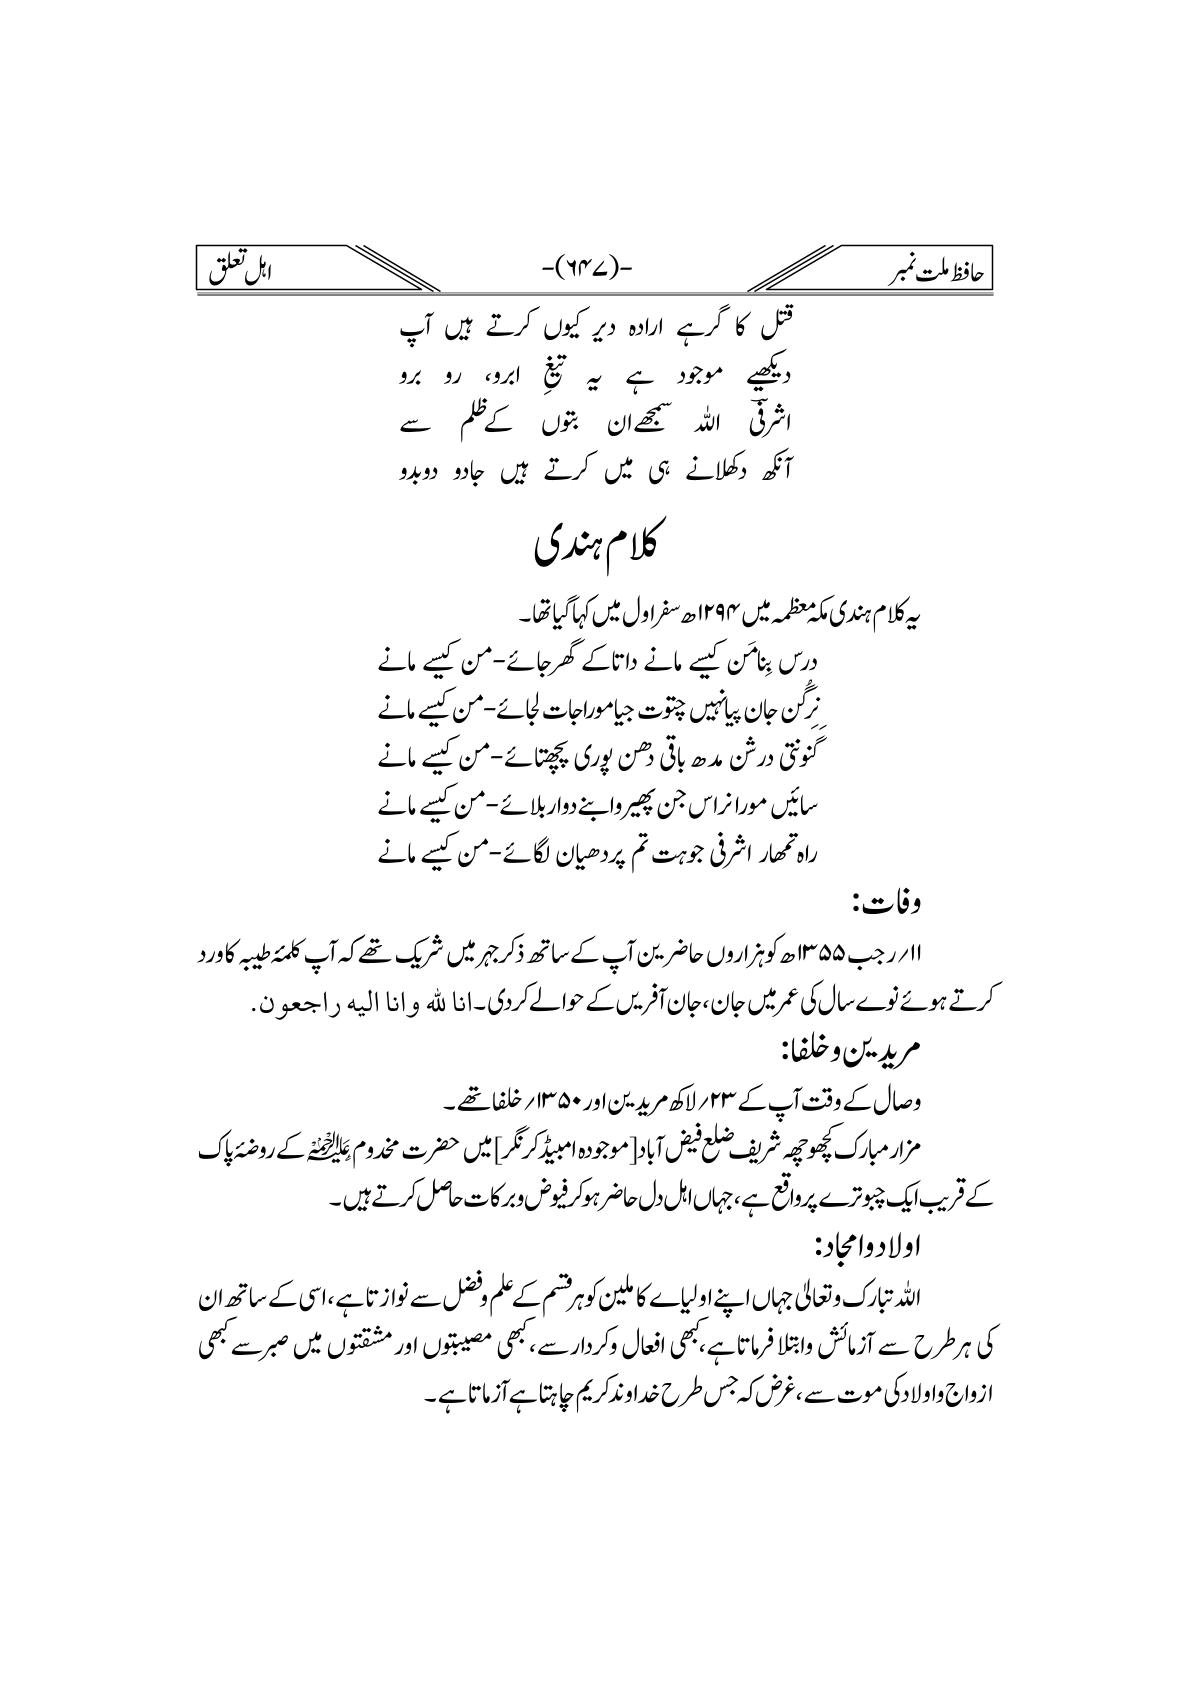 حافظ ملت نمبر -(۶۴۷)- اہل تعلق
قتل کا گر ہے ارادہ دیر کیوں کرتے ہیں آپ
دیکھیے موجود ہے یہ تیغِ ابرو، رو برو
اشرفیؔ اللہ سمجھے ان بتوں کے ظلم سے
آنکھ دکھلانے ہی میں کرتے ہیں جادو دوبدو
کلام ہندی
یہ کلام ہندی مکہ معظمہ میں ۱۲۹۴ھ سفر اول میں کہا گیا تھا۔
درس بِنا مَن کیسے مانے داتا کے گھر جائے-من کیسے مانے
نِرگُن جان پیا نہیں چتوت جیا مورا جات لجائے-من کیسے مانے
گنونتی درشن مدھ باقی دھن پوری پچھتائے-من کیسے مانے
سائیں مورا نراس جن پھیرو اپنے دوار بلائے-من کیسے مانے
راہ تمھار اشرفی جوہت تم پر دھیان لگائے-من کیسے مانے
وفات:
۱۱؍رجب ۱۳۵۵ھ کو ہزاروں حاضرین آپ کے ساتھ ذکر جہر میں شریک تھے کہ آپ کلمۂ طیبہ کا ورد
کرتے ہوئے نوے سال کی عمر میں جان، جان آفریں کے حوالے کردی۔ انا لله وانا اليه راجعون.
مریدین و خلفا:
وصال کے وقت آپ کے ۲۳؍لاکھ مریدین اور ۱۳۵۰؍خلفا تھے۔
مزار مبارک کچھوچھہ شریف ضلع فیض آباد [موجودہ امبیڈکر نگر] میں حضرت مخدوم علیہ الرحمہ کے روضۂ پاک
کے قریب ایک چبوترے پر واقع ہے، جہاں اہل دل حاضر ہوکر فیوض و برکات حاصل کرتے ہیں۔
اولاد و امجاد:
اللہ تبارک و تعالیٰ جہاں اپنے اولیاے کاملین کو ہر قسم کے علم و فضل سے نوازتا ہے، اسی کے ساتھ ان
کی ہر طرح سے آزمائش و ابتلا فرماتا ہے، کبھی افعال و کردار سے، کبھی مصیبتوں اور مشقتوں میں صبر سے کبھی
ازواج و اولاد کی موت سے، غرض کہ جس طرح خداوند کریم چاہتا ہے آزماتا ہے۔